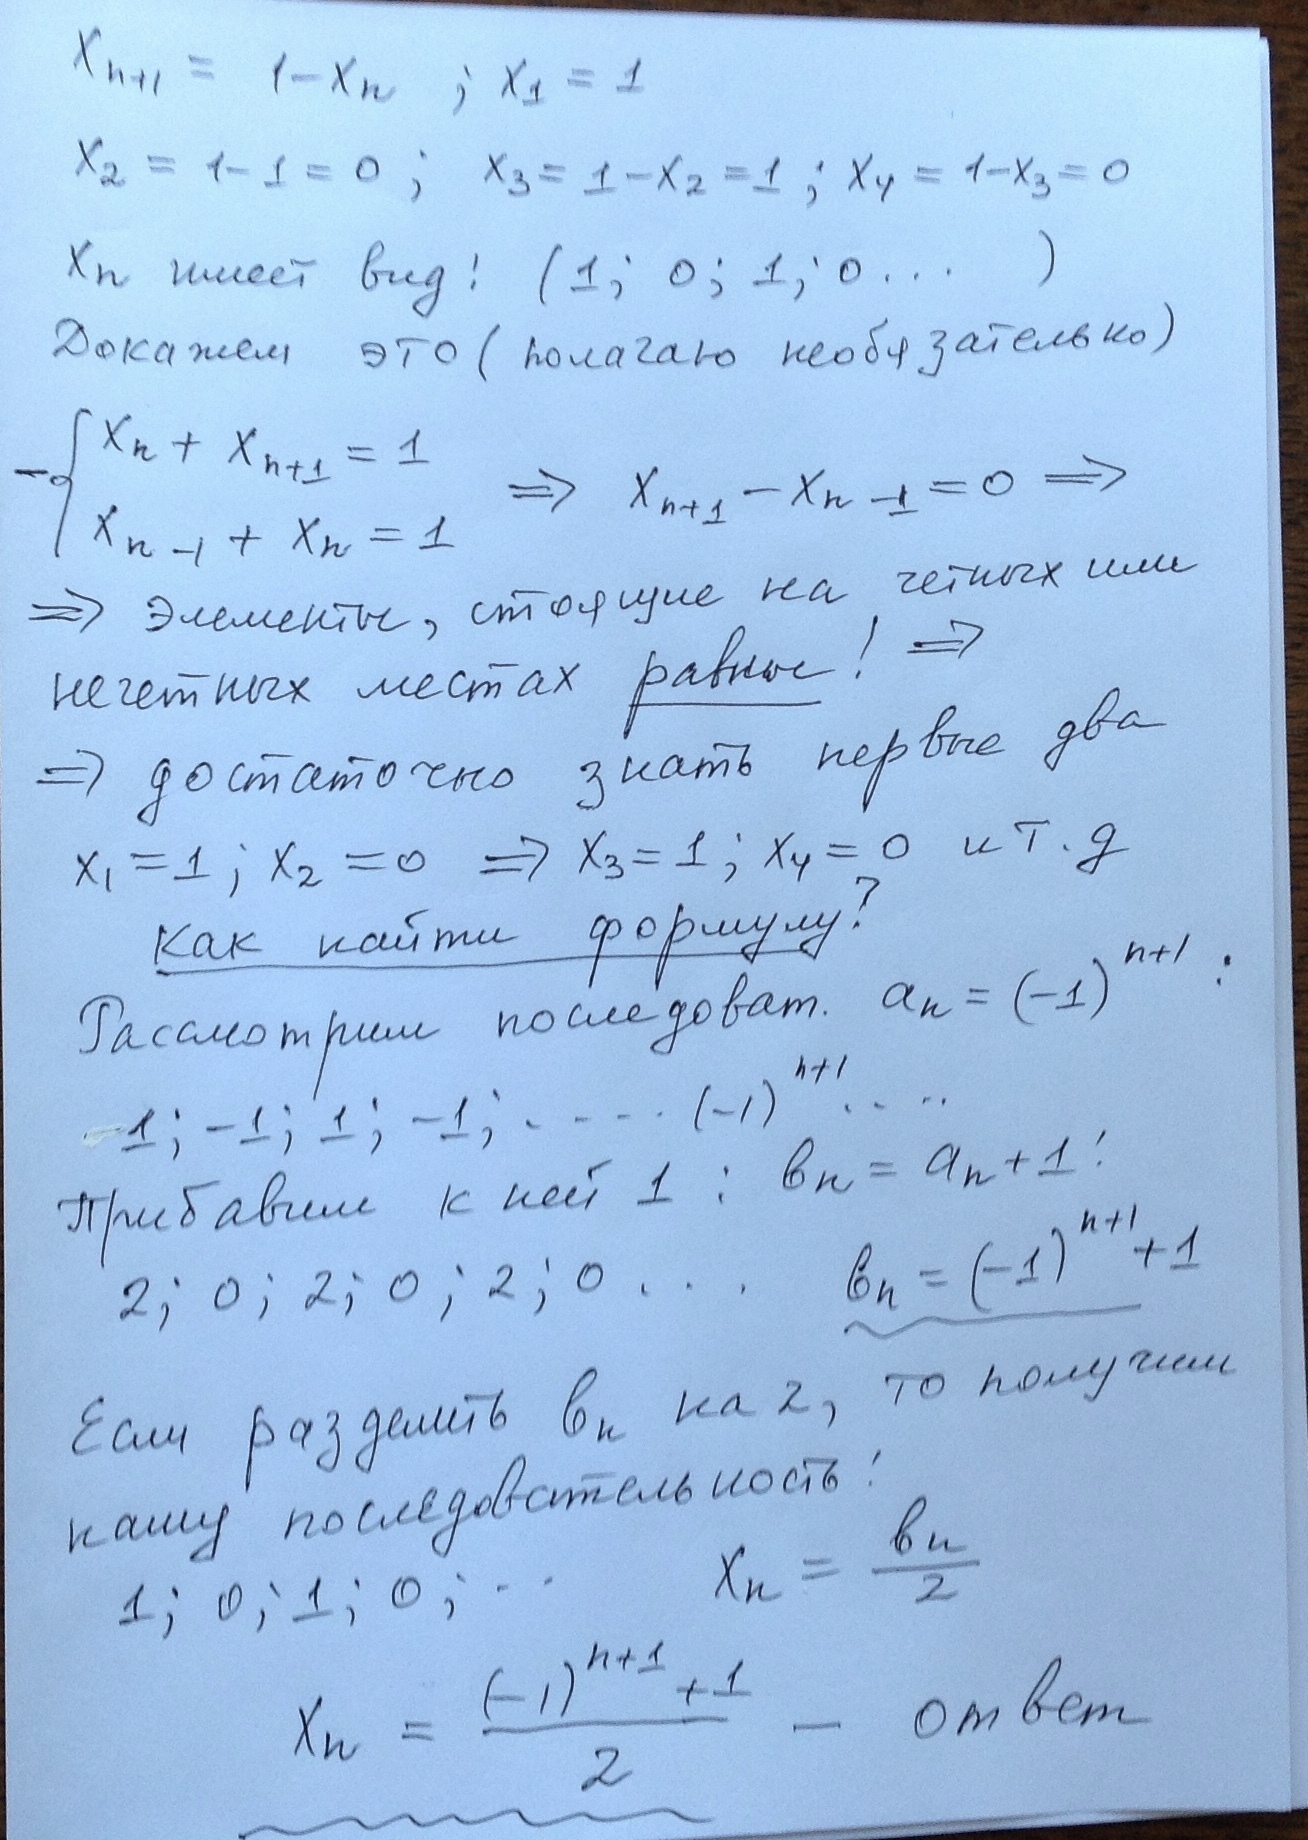 x_{n+1} = 1-x_n ; x_1 = 1
x_2 = 1-1 = 0 ; x_3 = 1-x_2 = 1 ; x_4 = 1-x_3 = 0
x_n имеет вид: (1; 0; 1; 0 ... )
Докажем это (полагаю необязательно)
- { x_n + x_{n+1} = 1
x_{n-1} + x_n = 1 ⇒ x_{n+1} - x_{n-1} = 0 ⇒
⇒ элементы, стоящие на четных или
нечетных местах равны! ⇒
⇒ достаточно знать первые два
x_1 = 1; x_2 = 0 ⇒ x_3 = 1; x_4 = 0 и т.д
Как найти формулу?
Рассмотрим последоват. a_n = (-1)^{n+1} :
1; -1; 1; -1; ..... (-1)^{n+1} ....
Прибавим к ней 1 : b_n = a_n + 1:
2; 0; 2; 0; 2; 0 ... b_n = (-1)^{n+1} + 1
Если разделить b_n на 2, то получим
нашу последовательность:
1; 0; 1; 0; .. x_n = b_n/2
x_n = ((-1)^{n+1} + 1)/2 - ответ